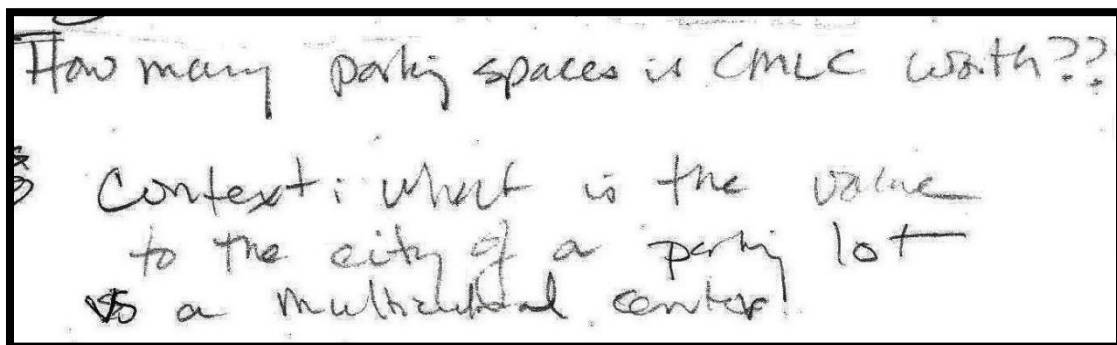 How many parking spaces is CMLC worth??
Context: what is the value
to the city of a parking lot
vs a multicultural center!